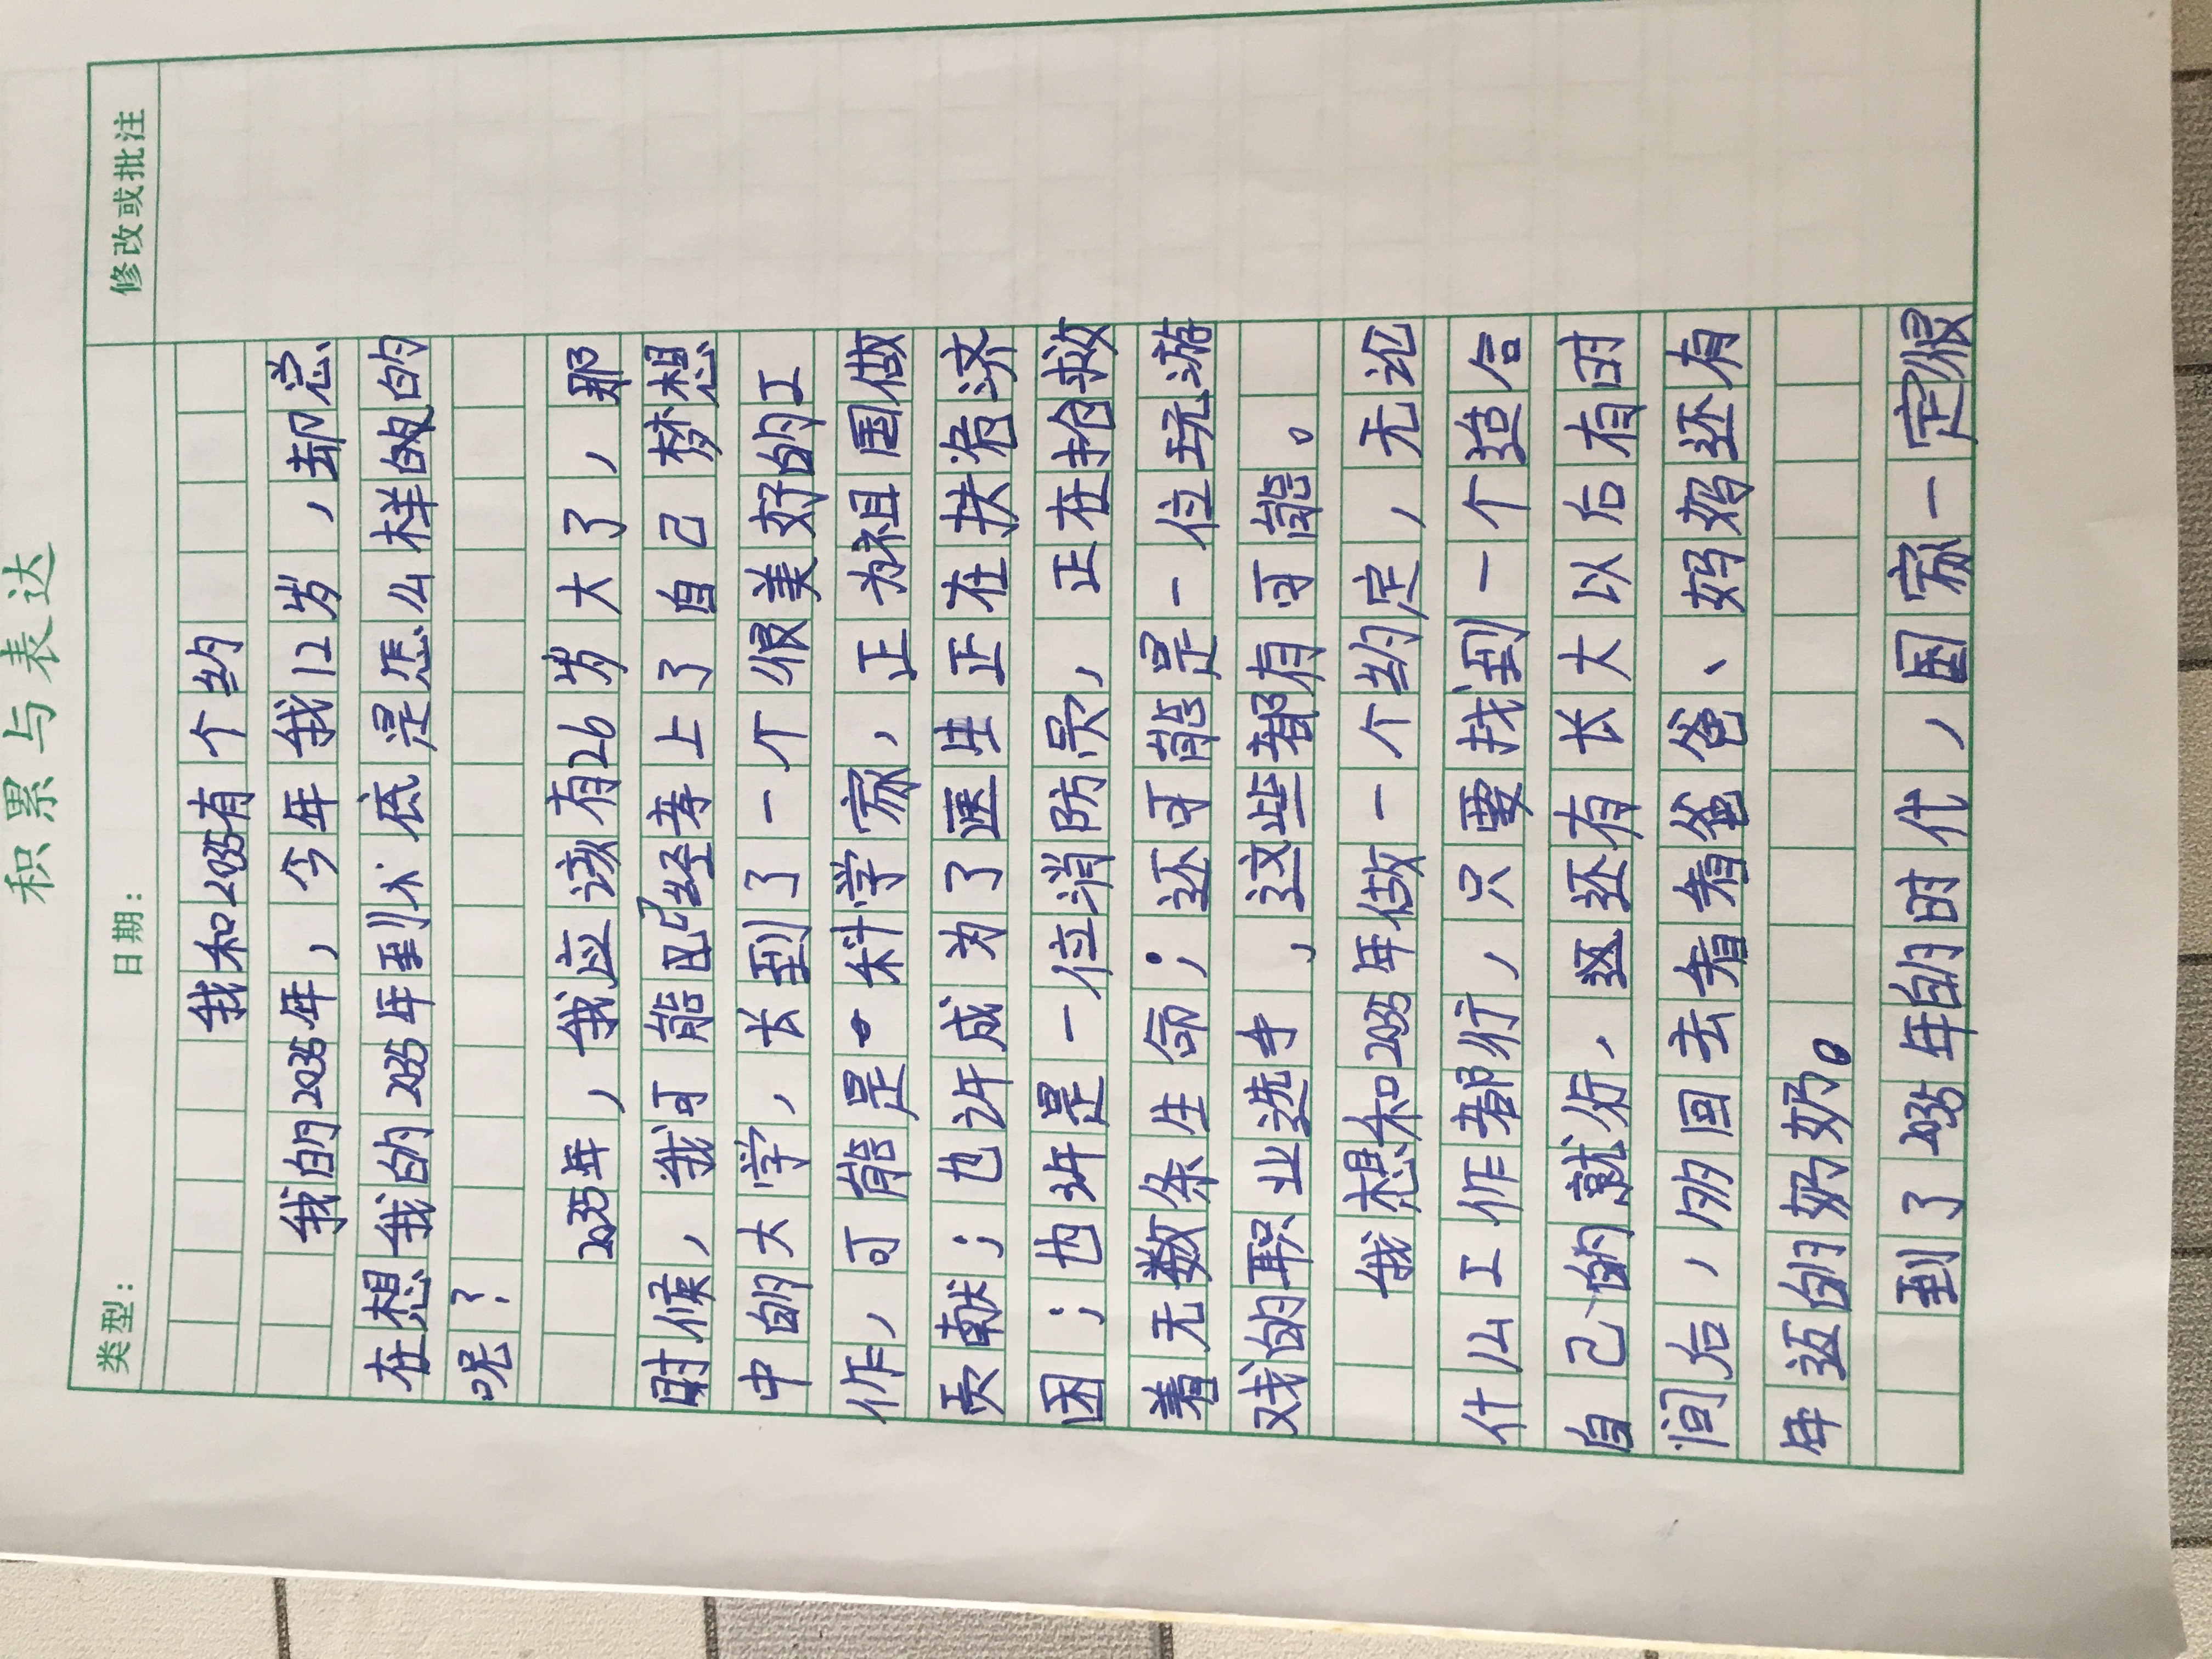 积累与表达
类型： 日期： 修改或批注
我和2035有个约
我的2035年，今年我12岁，却总
在想我的2035年到底是怎么样的
呢？
2035年，我应该有26岁大了，那
时候，我可能已经考上了自己梦想
中的大学，长到了一个很美好的工
作，可能是科学家，正为祖国做
贡献；也许成为了医生正在扶危济
困；也许是一位消防员，正在抢救
着无数条生命；还可能是一位玩游
戏的职业选手，这些都有可能。
我想和2035年做一个约定，无论
什么工作都行，只要找到一个适合
自己的就行，还有长大以后有时
间后，多回去看看爸爸、妈妈还有
年迈的奶奶。
到了2035年的时代，国家一定很